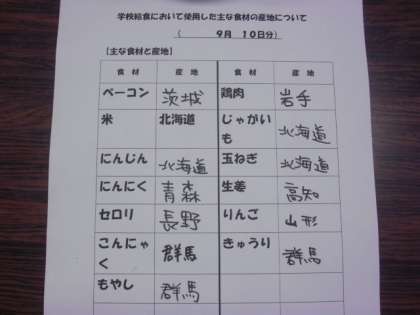 学校給食において使用した主な食材の産地について
(　9月　10日分)
【主な食材と産地】
食材　産地　食材　産地
ベーコン　茨城　鶏肉　岩手
米　北海道　じゃがいも　北海道
にんじん　北海道　玉ねぎ　北海道
にんにく　青森　生姜　高知
セロリ　長野　りんご　山形
こんにゃく　群馬　きゅうり　群馬
もやし　群馬